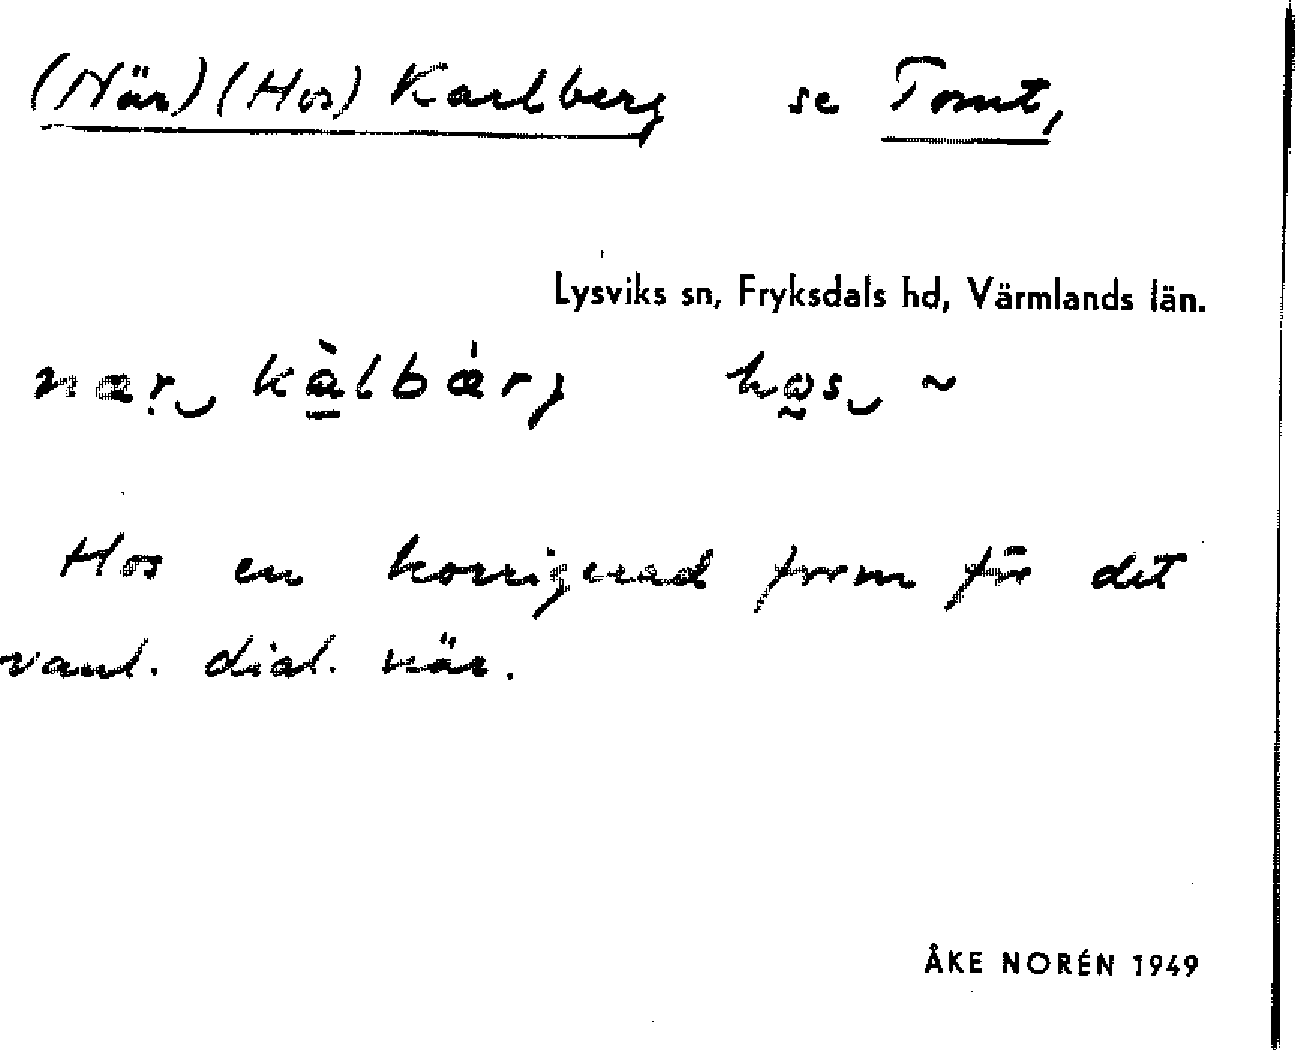 (När) (Hos) Karlberg se Tomt,
Lysviks sn, Fryksdals hd, Värmlands län.
næṛ‿ kàlbǽrj ho̰s‿ ~
Hos en korrigerad form för det
vanl. dial. när.
ÅKE NORÉN 1949